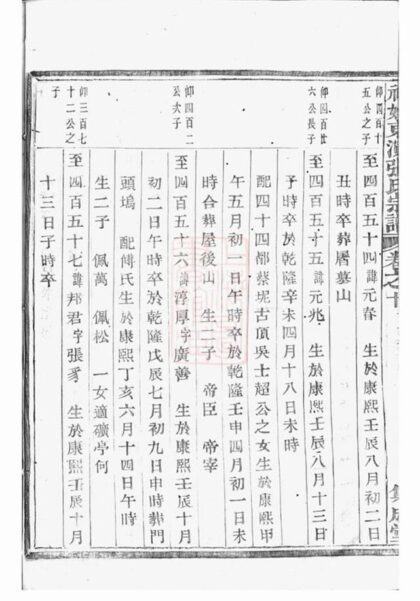 東溪張氏宗譜
師四百十
五公之子
至四百五十四諱元春 生於康熙壬辰八月初二日
丑時卒葬屠墓山
師四百廿
六公長子
至四百五十五諱元兆 生於康熙壬辰八月十三日
子時卒於乾隆辛未四月十八日未時
配四十四都蔡坭古頂吳士超公之女生於康熙甲
午五月初一日午時卒於乾隆壬申四月初一日未
時合葬屋後山 生二子 帝臣 帝宰
師四百二
公次子
至四百五十六諱淳厚字廣善 生於康熙壬辰十月
初二日午時卒於乾隆戊辰七月初九日申時葬門
頭塢 配傅氏生於康熙丁亥六月十四日午時
生二子 佩萬 佩松 一女適礦亭何
師三百七
十二公之
子
至四百五十七諱邦君字張 生於康熙壬辰十月
十三日子時卒